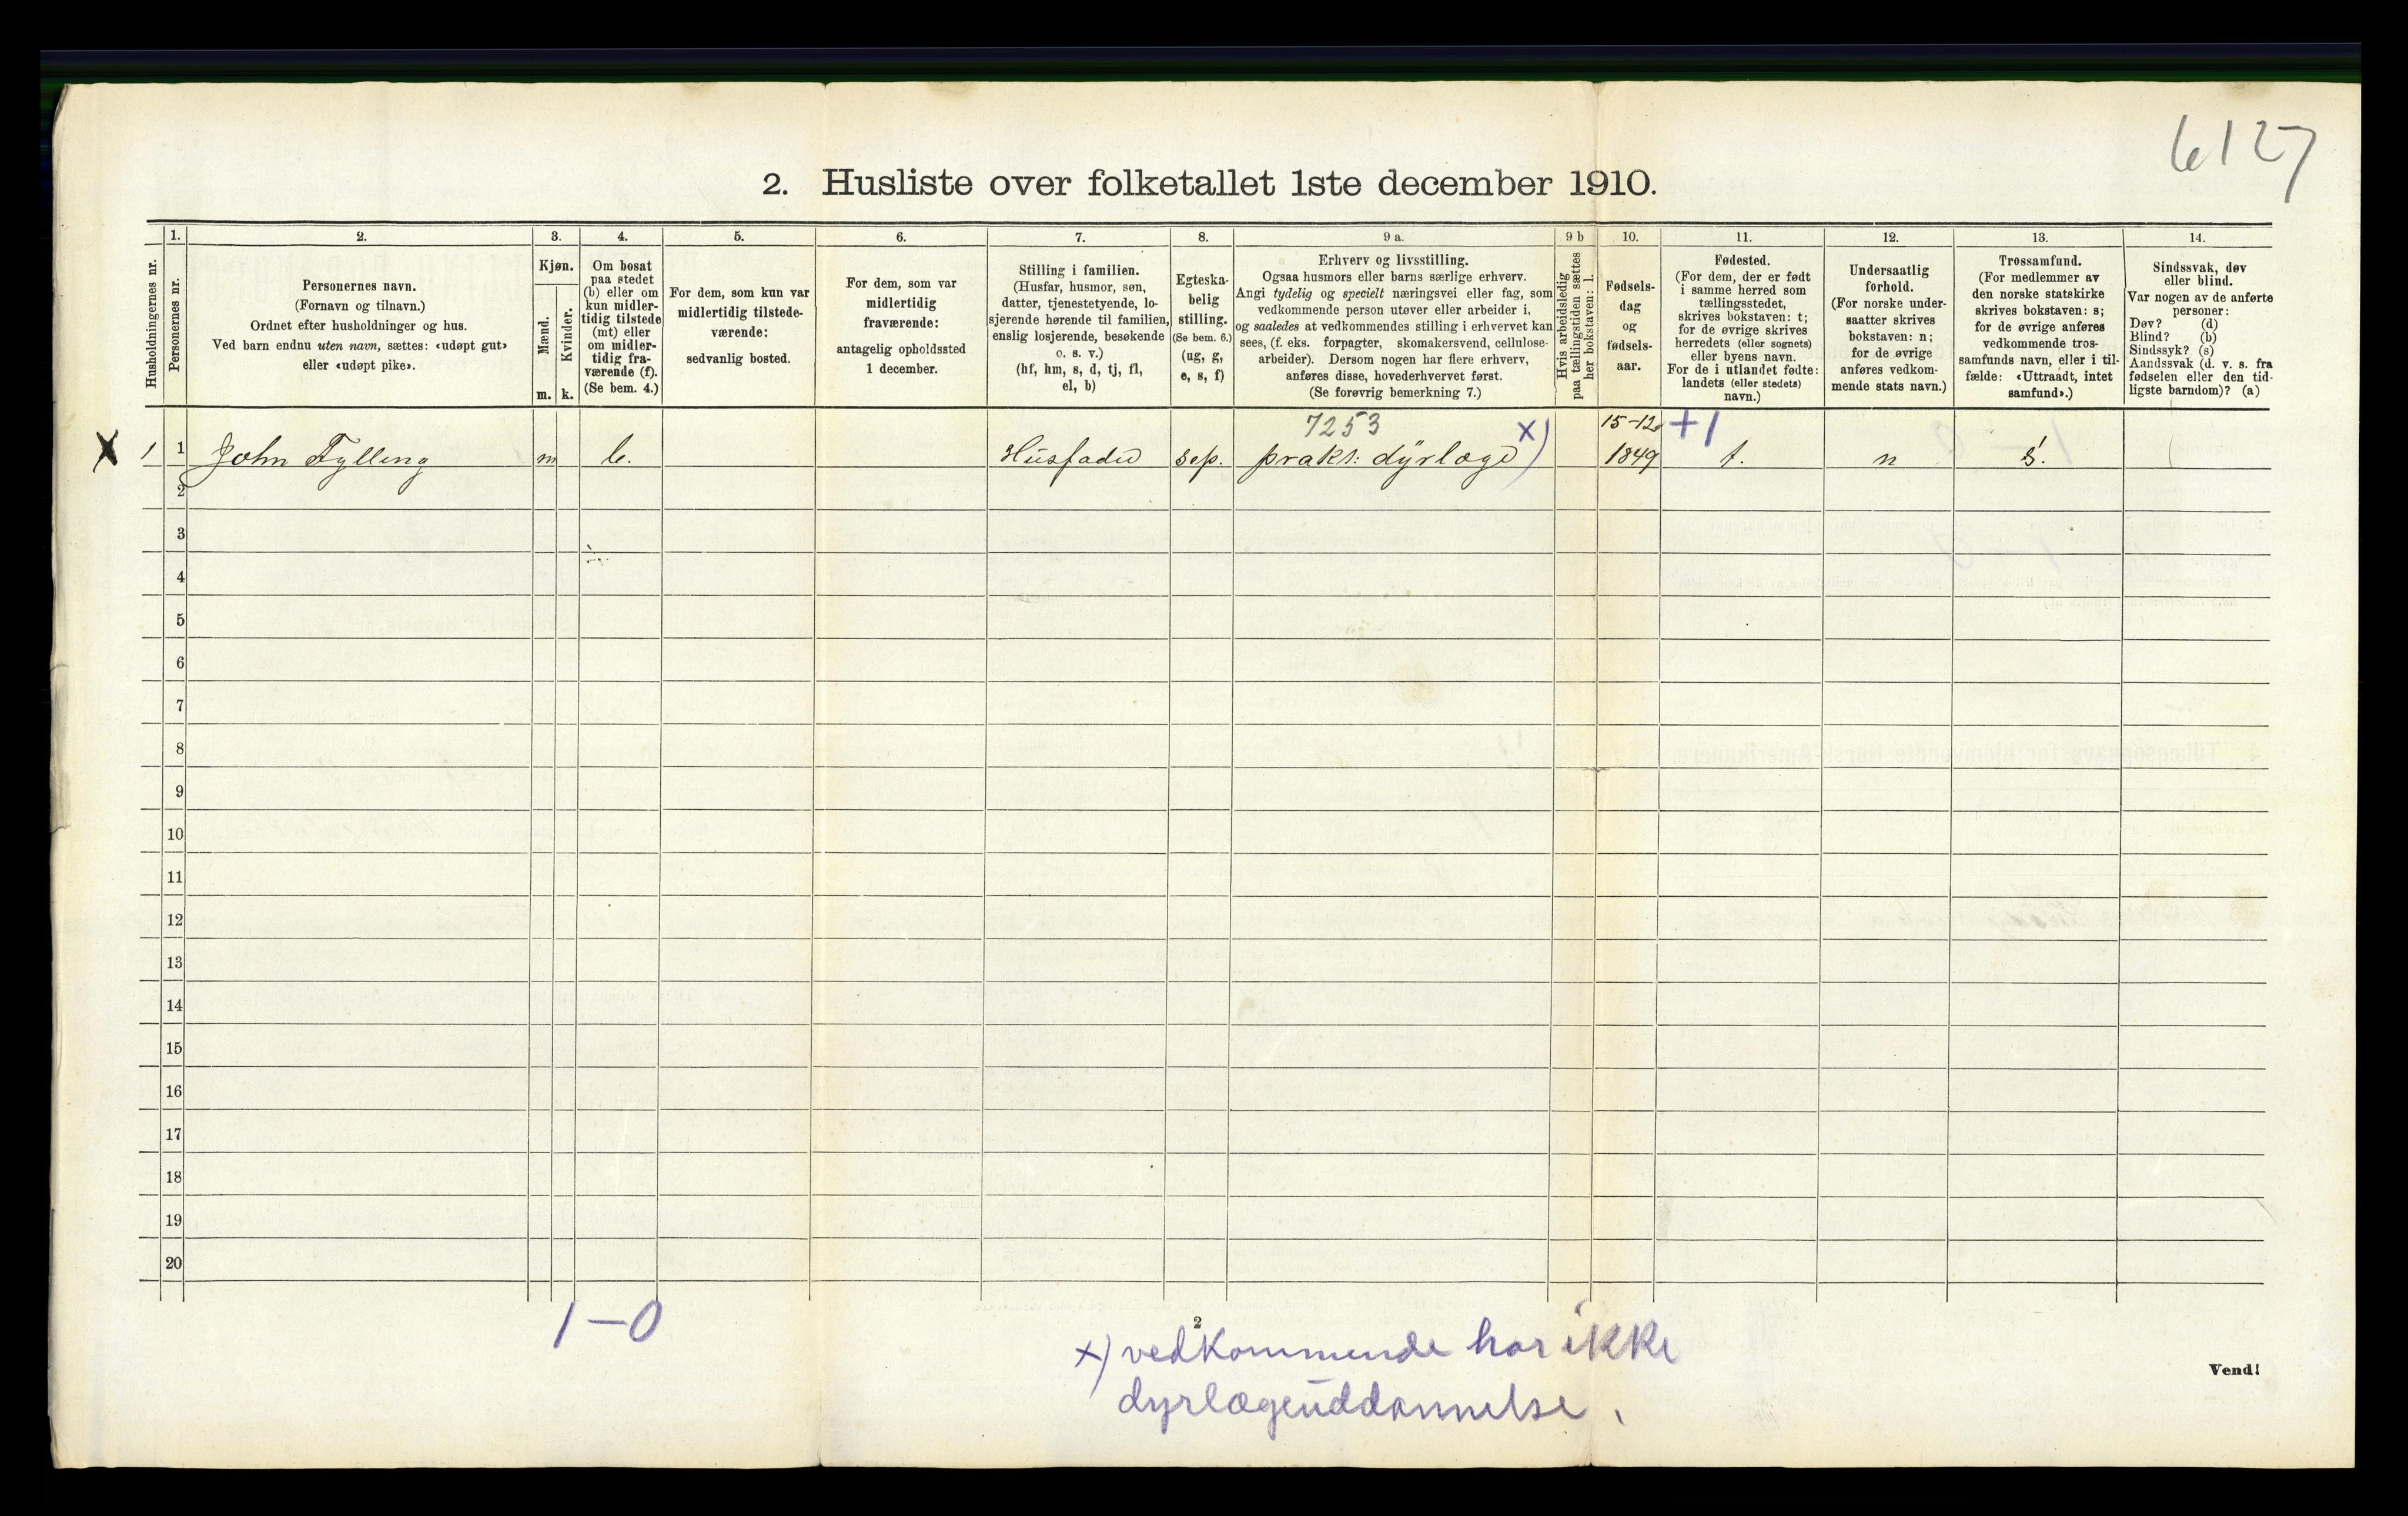 6127
2. Husliste over folketallet 1ste december 1910.
Husholdningernes nr.
1.
Personernes nr.
2.
Personernes navn.
(Fornavn og tilnavn.)
Ordnet efter husholdninger og hus.
Ved barn endnu uten navn, sættes: «udøpt gut»
eller «udøpt pike».
3.
Kjøn.
Mænd.
Kvinder.
m. k.
4.
Om bosat
paa stedet
(b) eller om
kun midler-
tidig tilstede
(mt) eller
om midler-
tidig fra-
værende (f).
(Se bem. 4.)
5.
For dem, som kun var
midlertidig tilstede-
værende:
sedvanlig bosted.
6.
For dem, som var
midlertidig
fraværende:
antagelig opholdssted
1 december.
7.
Stilling i familien.
(Husfar, husmor, søn,
datter, tjenestetyende, lo-
sjerende hørende til familien,
enslig losjerende, besøkende
o. s. v.)
(hf, hm, s, d, tj, fl,
el, b)
8.
Egteska-
belig
stilling.
(Se bem. 6.)
(ug, g,
e, s, f)
9 a.
Erhverv og livsstilling.
Ogsaa husmors eller barns særlige erhverv.
Angi tydelig og specielt næringsvei eller fag, som
vedkommende person utøver eller arbeider i,
og saaledes at vedkommendes stilling i erhvervet kan
sees, (f. eks. forpagter, skomakersvend, cellulose-
arbeider). Dersom nogen har flere erhverv,
anføres disse, hovederhvervet først.
(Se forøvrig bemerkning 7.)
9 b
Hvis arbeidsledig
paa tællingstiden sættes
her bokstaven: l.
10.
Fødsels-
dag
og
fødsels-
aar.
11.
Fødested.
(For dem, der er født
i samme herred som
tællingsstedet,
skrives bokstaven: t;
for de øvrige skrives
herredets (eller sognets)
eller byens navn.
For de i utlandet fødte:
landets (eller stedets)
navn.)
12.
Undersaatlig
forhold.
(For norske under-
saatter skrives
bokstaven: n;
for de øvrige
anføres vedkom-
mende stats navn.)
13.
Trossamfund.
(For medlemmer av
den norske statskirke
skrives bokstaven: s;
for de øvrige anføres
vedkommende tros-
samfunds navn, eller i til-
fælde: «Uttraadt, intet
samfund».)
14.
Sindssvak, døv
eller blind.
Var nogen av de anførte
personer:
Døv? (d)
Blind? (b)
Sindssyk? (s)
Aandssvak (d. v. s. fra
fødselen eller den tid-
ligste barndom)? (a)
7253 x) 15-12 +1
X 1 1 John Fylling m b. Husfader sep. prakt: dyrlæge 1849 t. n s.
2
3
4
5
6
7
8
9
10
11
12
13
14
15
16
17
18
19
20
1-0
2
x) vedkommende har ikke
dyrlægeuddannelse.
Vend!